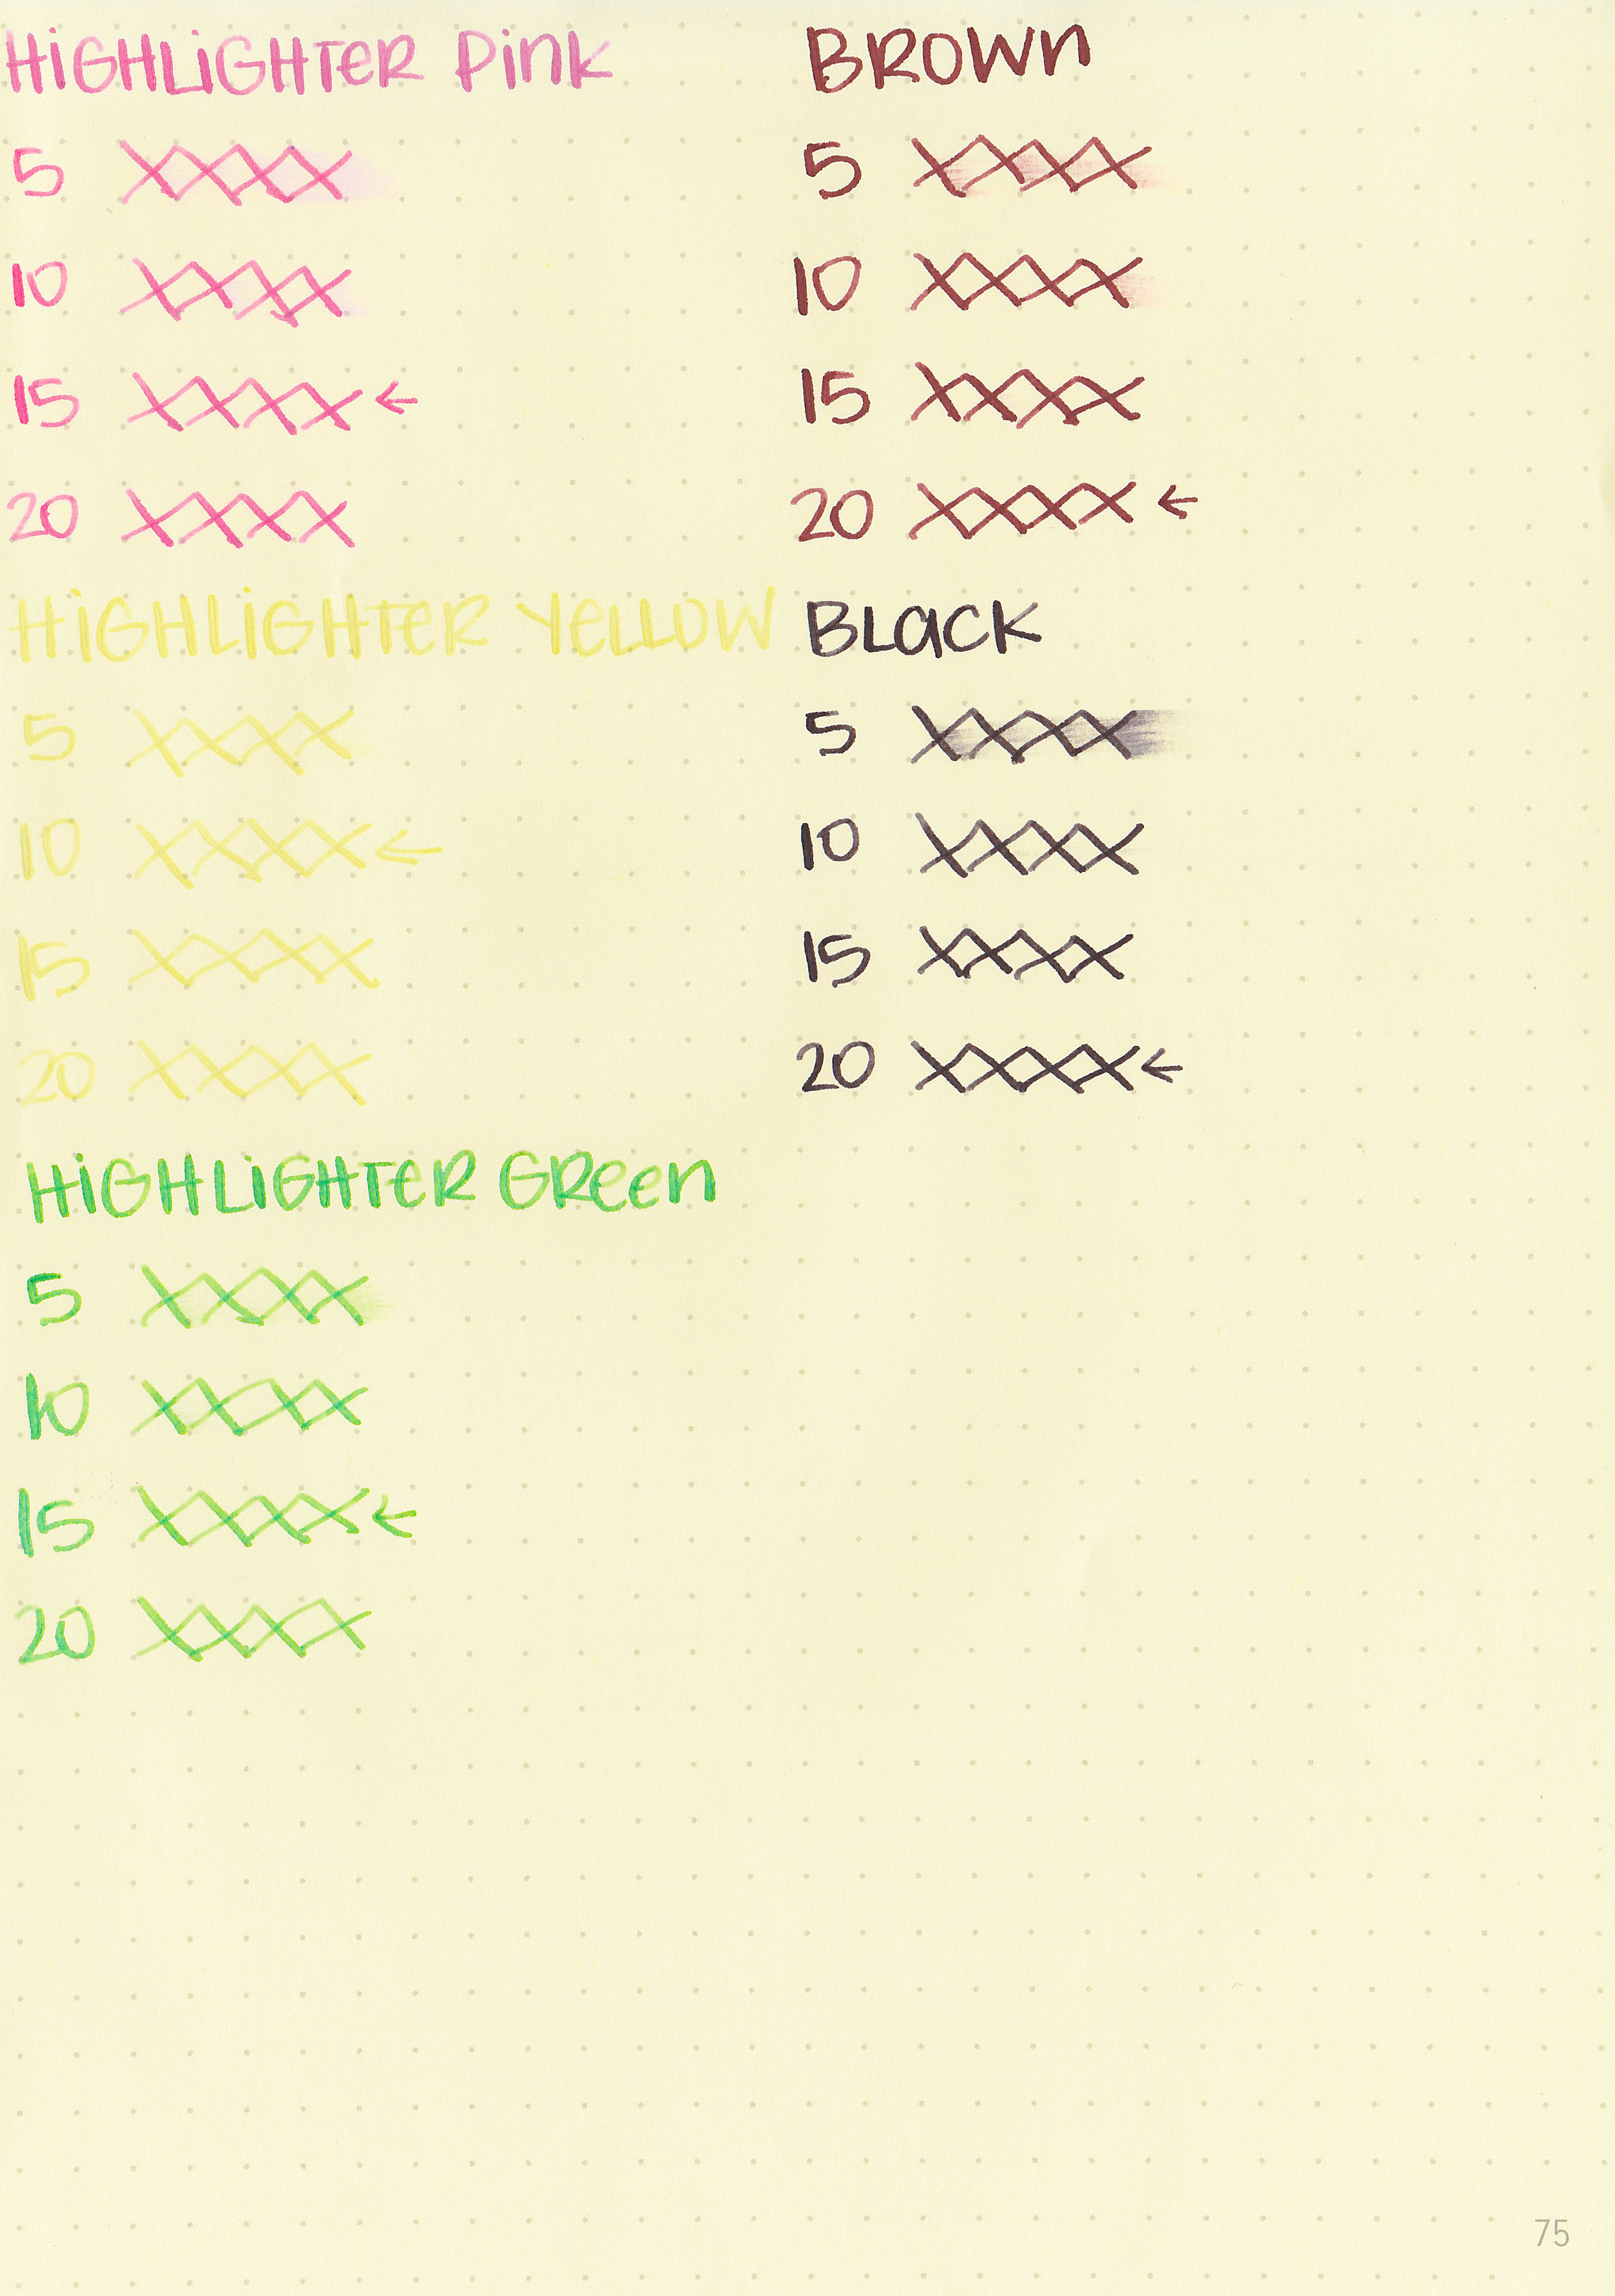 HiGHLiGHTER Pink
5 XXXX
10 XXXX
15 XXXX ←
20 XXXX
HiGHLiGHTER YeLLOW
5 XXXX
10 XXXX ←
15 XXXX
20 XXXX
HiGHLiGHTER GReen
5 XXXX
10 XXXX
15 XXXX ←
20 XXXX
BROWn
5 XXXX
10 XXXX
15 XXXX
20 XXXX ←
BLaCK
5 XXXX
10 XXXX
15 XXXX
20 XXXX ←
75